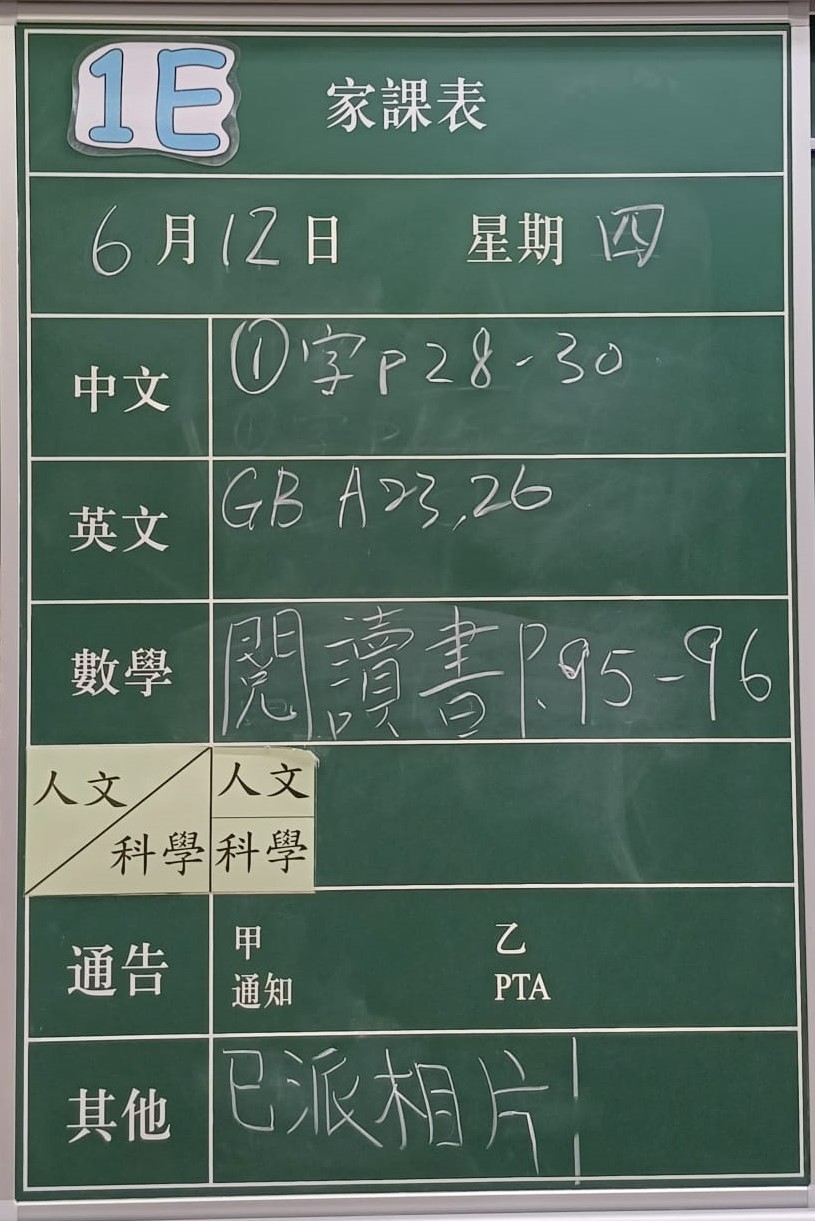 1E 家課表
6月12日 星期四
中文 ①字P28-30
英文 GB A23,26
數學 閱讀書P.95-96
人文 人文
科學 科學
通告 甲 乙
通知 PTA
其他 已派相片